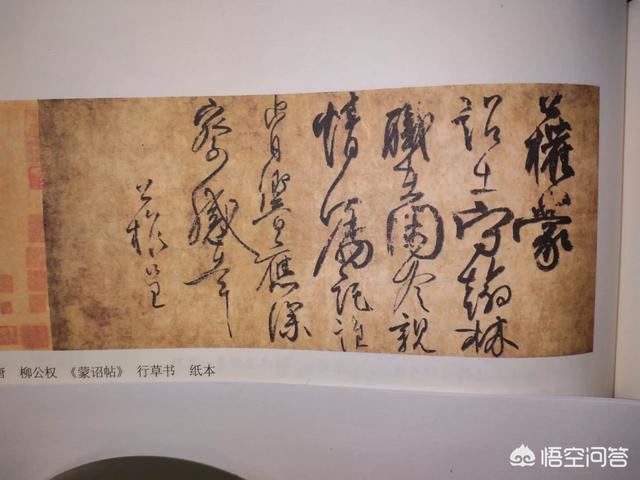 公權蒙
詔出守翰林
職在閑冷親
情囑託誰
肯響應深
察感幸
公權呈
唐 柳公权 《蒙诏帖》 行草书 纸本
悟空问答